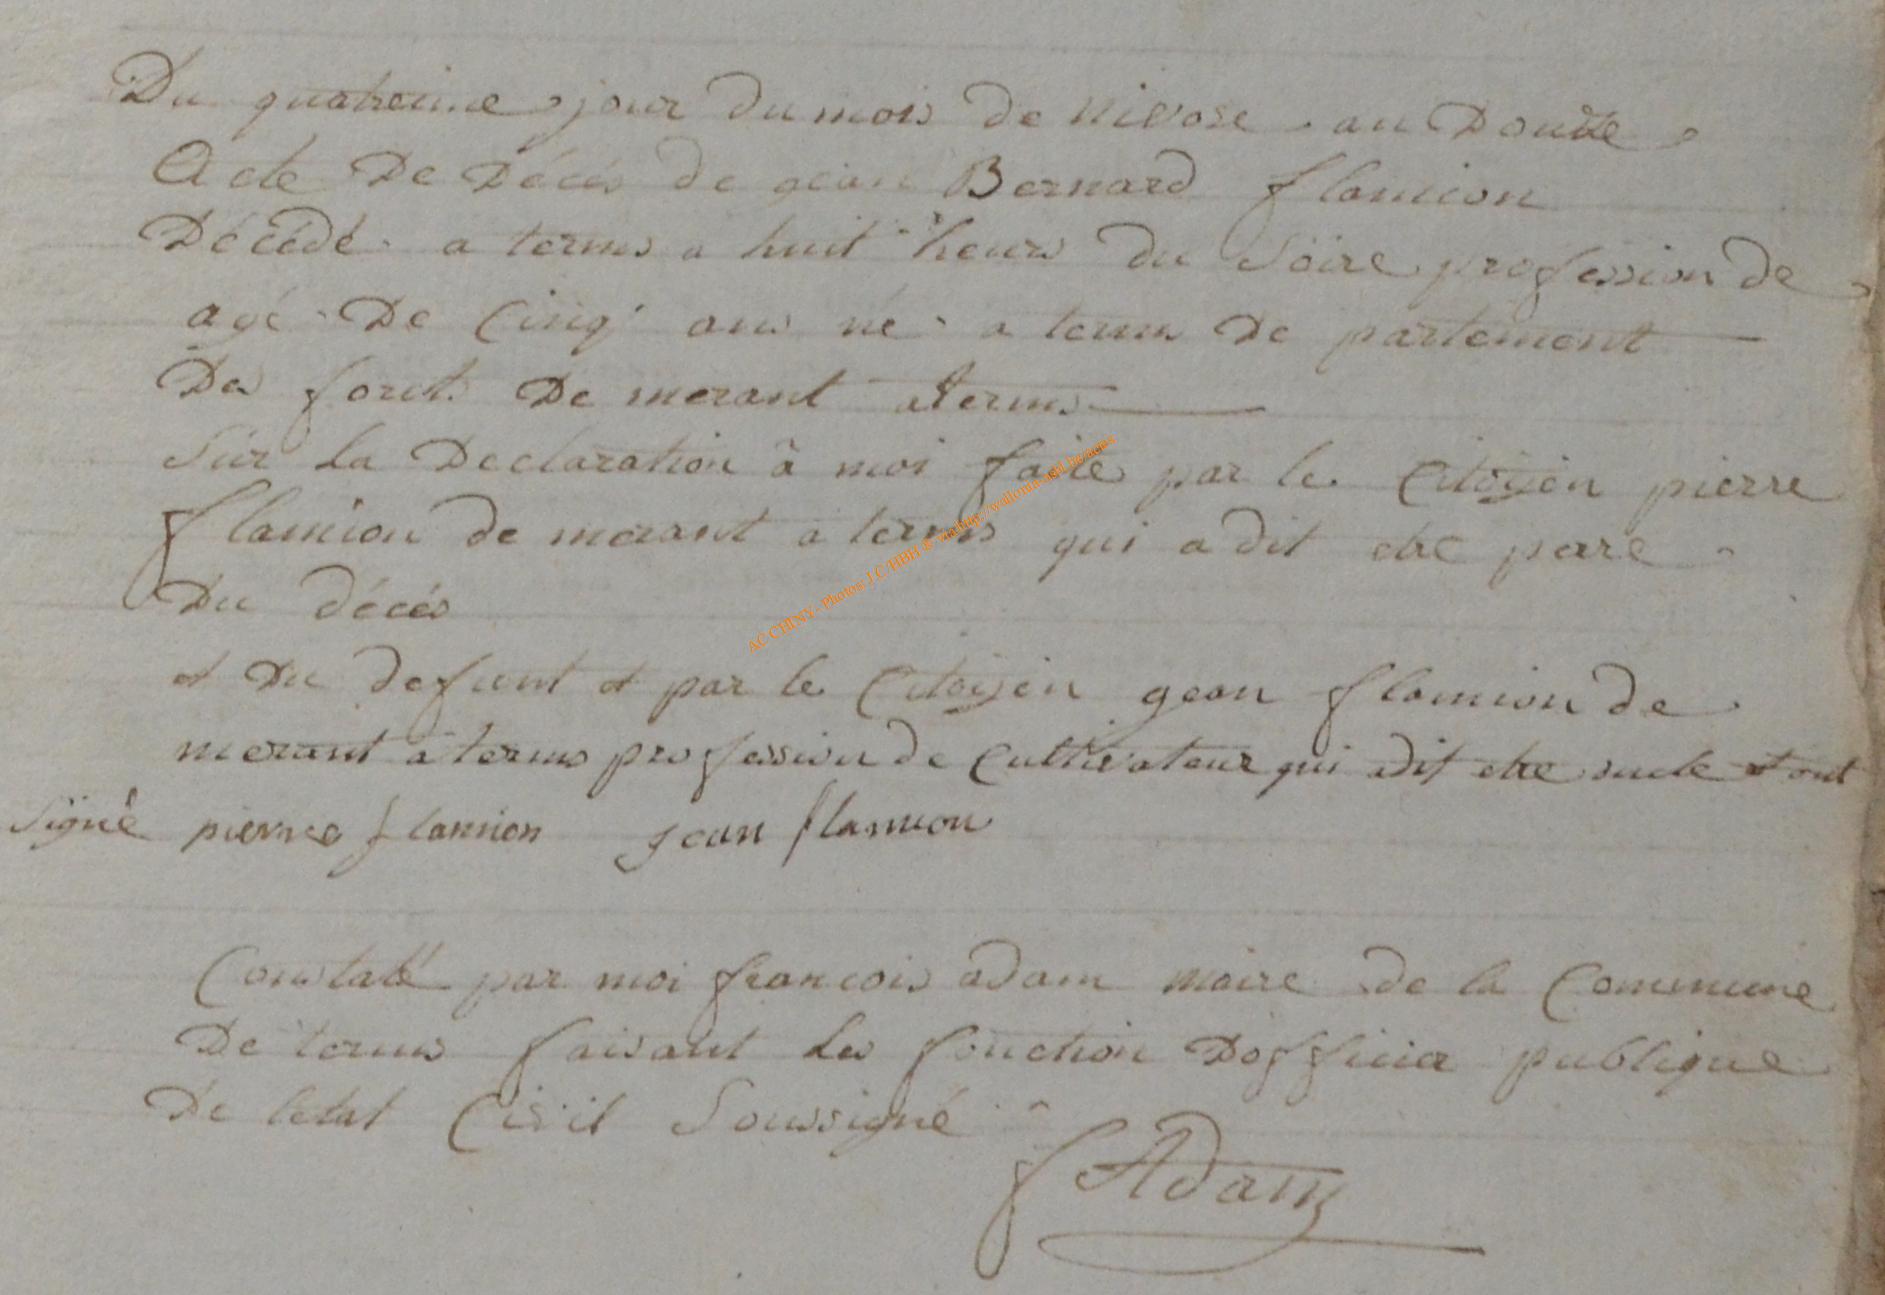 Du quatreime jour du mois de nivose an Douze
Acte De Décés de gean Bernard flamion
Décédé a termes a huit heurs du Soire profession de
agé De Cinq ans né a termes De partement
Des forets De merant a termes
Sur la Declaration à moi faite par le Citoyen pierre
flamion de merant a termes qui a dit etre pere
Du décés
et Du defunt et par le Citoyen gean flamion de
merant a termes profession de Cultivateur qui a dit etre oncle et ont
Signé pierre flamion jean flamion
Constaté par moi francois adam Maire de la Commune
De termes faisant Les fonction Dofficier publique
De letat Civil Soussigné
f Adam
AC CHINY - Photos: J.C/HBH